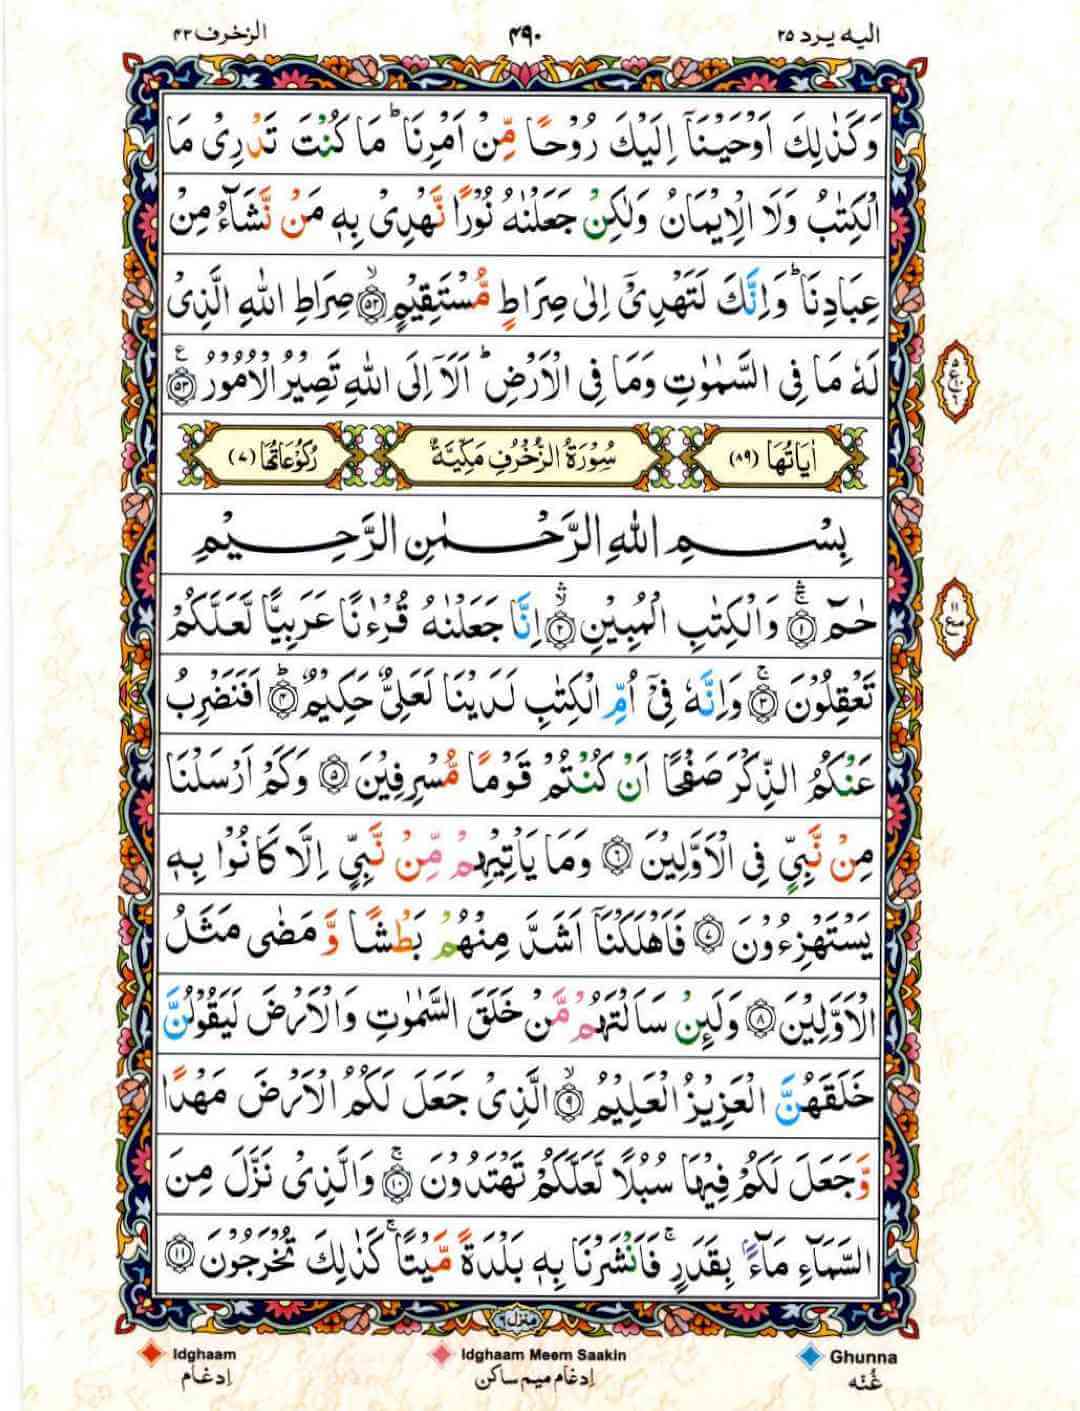 الیه یرد ۲۵
۴۹۰
الزخرف ۴۳
وَكَذٰلِكَ اَوْحَيْنَاۤ اِلَيْكَ رُوْحًا مِّنْ اَمْرِنَا ؕ مَا كُنْتَ تَدْرِیْ مَا
الْكِتٰبُ وَلَا الْاِيْمَانُ وَلٰكِنْ جَعَلْنٰهُ نُوْرًا نَّهْدِیْ بِهٖ مَنْ نَّشَآءُ مِنْ
عِبَادِنَا ؕ وَاِنَّكَ لَتَهْدِیْۤ اِلٰی صِرَاطٍ مُّسْتَقِيْمٍ ۙ‏﴿۵۲﴾ صِرَاطِ اللّٰهِ الَّذِیْ
لَهٗ مَا فِی السَّمٰوٰتِ وَمَا فِی الْاَرْضِ ؕ اَلَاۤ اِلَی اللّٰهِ تَصِيْرُ الْاُمُوْرُ ﴿۵۳﴾ ع
۵
ع
۶
اٰيَاتُهَا (۸۹)
سُوْرَةُ الزُّخْرُفِ مَكِّيَّةٌ
رُكُوْعَاتُهَا (۷)
بِسْمِ اللّٰهِ الرَّحْمٰنِ الرَّحِيْمِ
حٰمٓ ۚۛ﴿۱﴾ وَالْكِتٰبِ الْمُبِيْنِ ۙۛ﴿۲﴾ اِنَّا جَعَلْنٰهُ قُرْءٰنًا عَرَبِيًّا لَّعَلَّكُمْ
۱۱
مع
تَعْقِلُوْنَ ۚ﴿۳﴾ وَاِنَّهٗ فِیْۤ اُمِّ الْكِتٰبِ لَدَيْنَا لَعَلِیٌّ حَكِيْمٌ ؕ﴿۴﴾ اَفَنَضْرِبُ
عَنْكُمُ الذِّكْرَ صَفْحًا اَنْ كُنْتُمْ قَوْمًا مُّسْرِفِيْنَ ﴿۵﴾ وَكَمْ اَرْسَلْنَا
مِنْ نَّبِیٍّ فِی الْاَوَّلِيْنَ ﴿۶﴾ وَمَا يَاْتِيْهِمْ مِّنْ نَّبِیٍّ اِلَّا كَانُوْا بِهٖ
يَسْتَهْزِءُوْنَ ﴿۷﴾ فَاَهْلَكْنَاۤ اَشَدَّ مِنْهُمْ بَطْشًا وَّ مَضٰی مَثَلُ
الْاَوَّلِيْنَ ﴿۸﴾ وَلَئِنْ سَاَلْتَهُمْ مَّنْ خَلَقَ السَّمٰوٰتِ وَالْاَرْضَ لَيَقُوْلُنَّ
خَلَقَهُنَّ الْعَزِيْزُ الْعَلِيْمُ ۙ﴿۹﴾ الَّذِیْ جَعَلَ لَكُمُ الْاَرْضَ مَهْدًا
وَّجَعَلَ لَكُمْ فِيْهَا سُبُلًا لَّعَلَّكُمْ تَهْتَدُوْنَ ۚ﴿۱۰﴾ وَالَّذِیْ نَزَّلَ مِنَ
السَّمَآءِ مَآءًۢ بِقَدَرٍ ۚ فَاَنْشَرْنَا بِهٖ بَلْدَةً مَّيْتًا ۚ كَذٰلِكَ تُخْرَجُوْنَ ﴿۱۱﴾
منزل ۶
Idghaam
Idghaam Meem Saakin
Ghunna
اِدغام
اِدغام میم ساکن
غُنّه